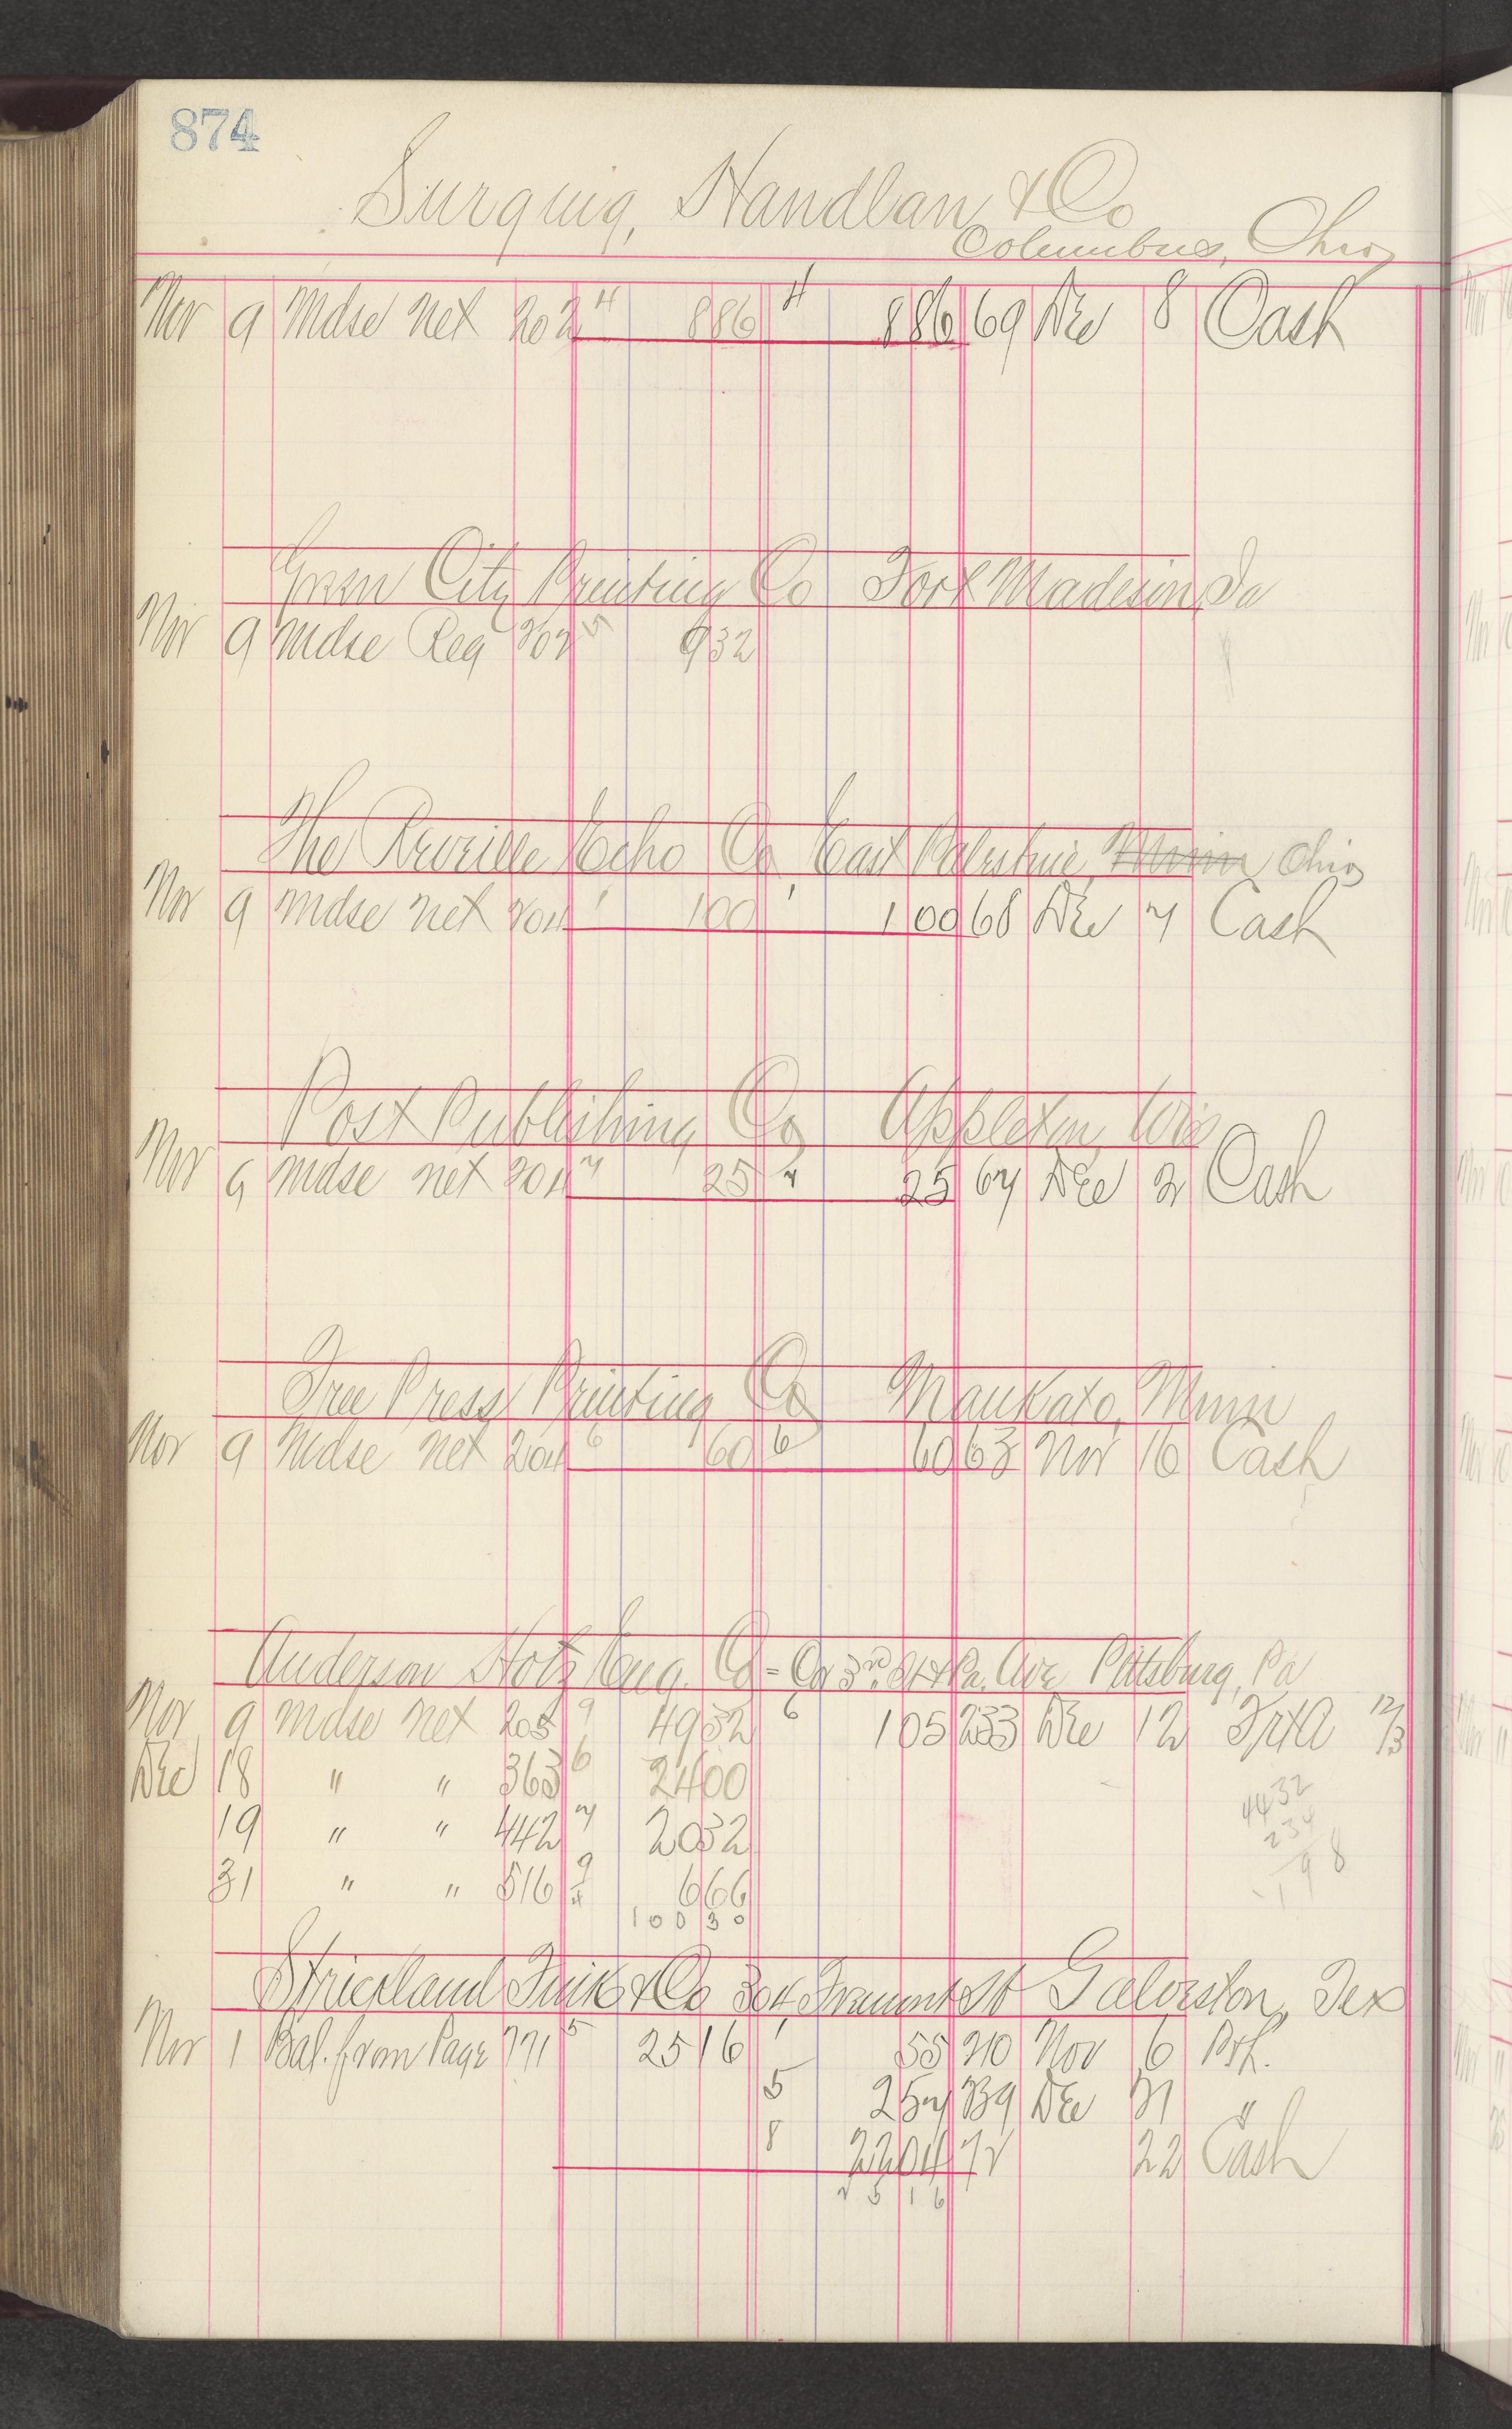 874
Handlan & Co
Columbus, Ohio
Nov 9 Mdse net 202 4 886 4 886 69 Dec 8 Cash
City Printing Co Fort Madison, Ia
Nov 9 Mdse Reg 202 5 932
The Reveille Echo Co, East Palestine, Minn Ohio
Nov 9 Mdse net 204 1 100 1 100 68 Dec 7 Cash
Post Publishing Co Appleton, Wis
Nov 9 Mdse net 204 7 25 7 25 67 Dec 2 Cash
Free Press Printing Co Mankato, Minn
Nov 9 Mdse net 204 6 60 6 60 63 Nov 16 Cash
Anderson Hotz Eng. Co - Cor 3rd St & Pa. Ave Pittsburg, Pa
Nov 9 Mdse net 205 9 4932 6 105 233 Dec 12
Dec 18 " " 363 6 2400
19 " " 442 7 2032
4432
234
31 " " 516 9 666
198
10030
Strickland & Co 304 Tremont St Galveston, Tex
Nov 1 Bal. from Page 771 5 2516 1 55 210 Nov 6
5 257 239 Dec 31 "
8 2204 72 22 Cash
2516